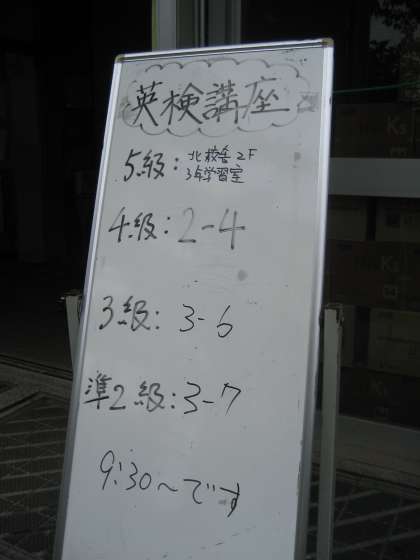 英検講座
5級: 北校舎2F
3年学習室
4級: 2-4
3級: 3-6
準2級: 3-7
9:30〜です